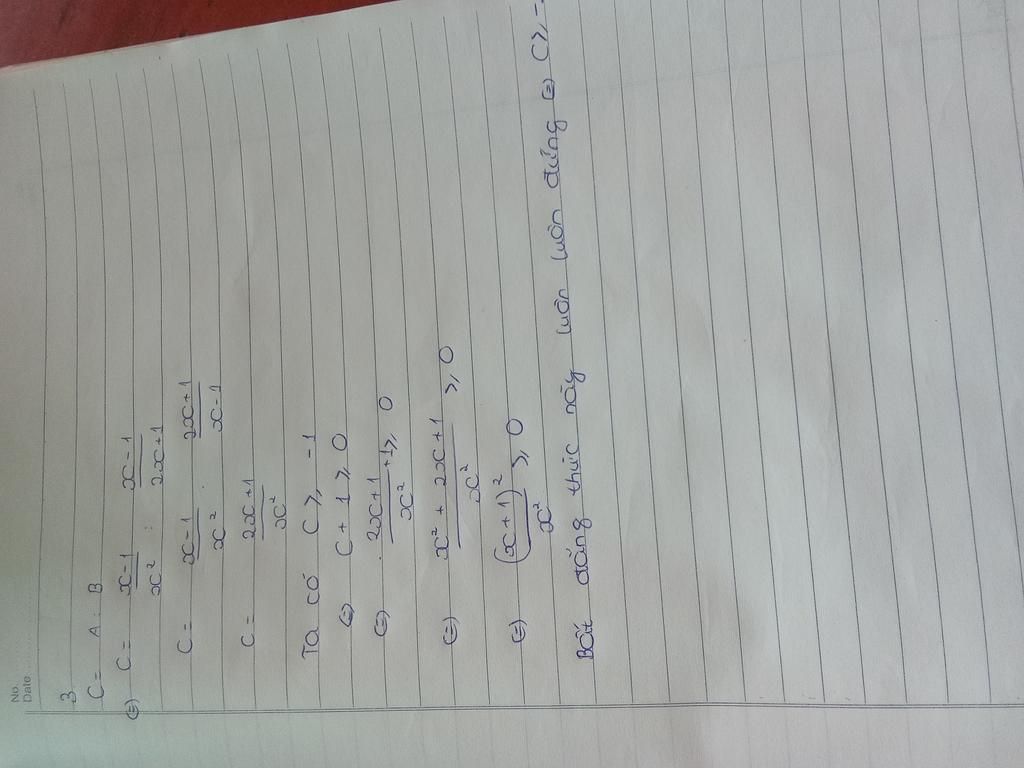 No.
Date
3
C = A : B
⇔ C = (x-1)/x² : (x-1)/(2x+1)
C = (x-1)/x² . (2x+1)/(x-1)
C = (2x+1)/x²
Ta có C ≥ -1
⇔ C + 1 ≥ 0
⇔ (2x+1)/x² + 1 ≥ 0
⇔ (x² + 2x + 1)/x² ≥ 0
⇔ (x+1)²/x² ≥ 0
Bất đẳng thức này luôn luôn đúng ⇔ C ≥ -